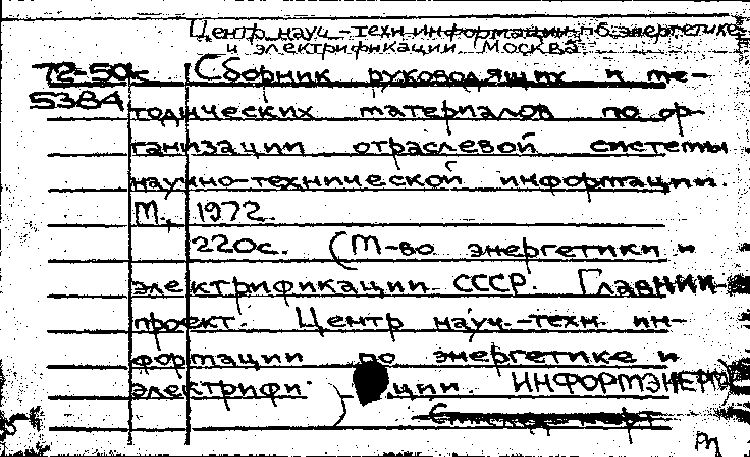 Центр науч.-техн информации по энергетике
и электрификации. Москва
72-50к Сборник руководящих и ме-
5384 тодических материалов по ор-
ганизации отраслевой системы
научно-технической информации.
М., 1972.
220с. (М-во энергетики и
электрификации СССР. Главнии-
проект. Центр науч.-техн. ин-
формации по энергетике и
электрифи ции. ИНФОРМЭНЕРГО)